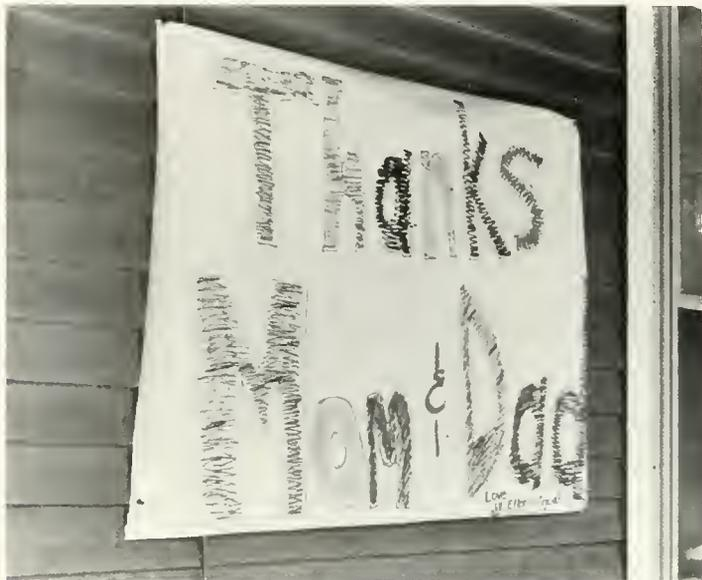 Thanks
Mom & Dad
Love